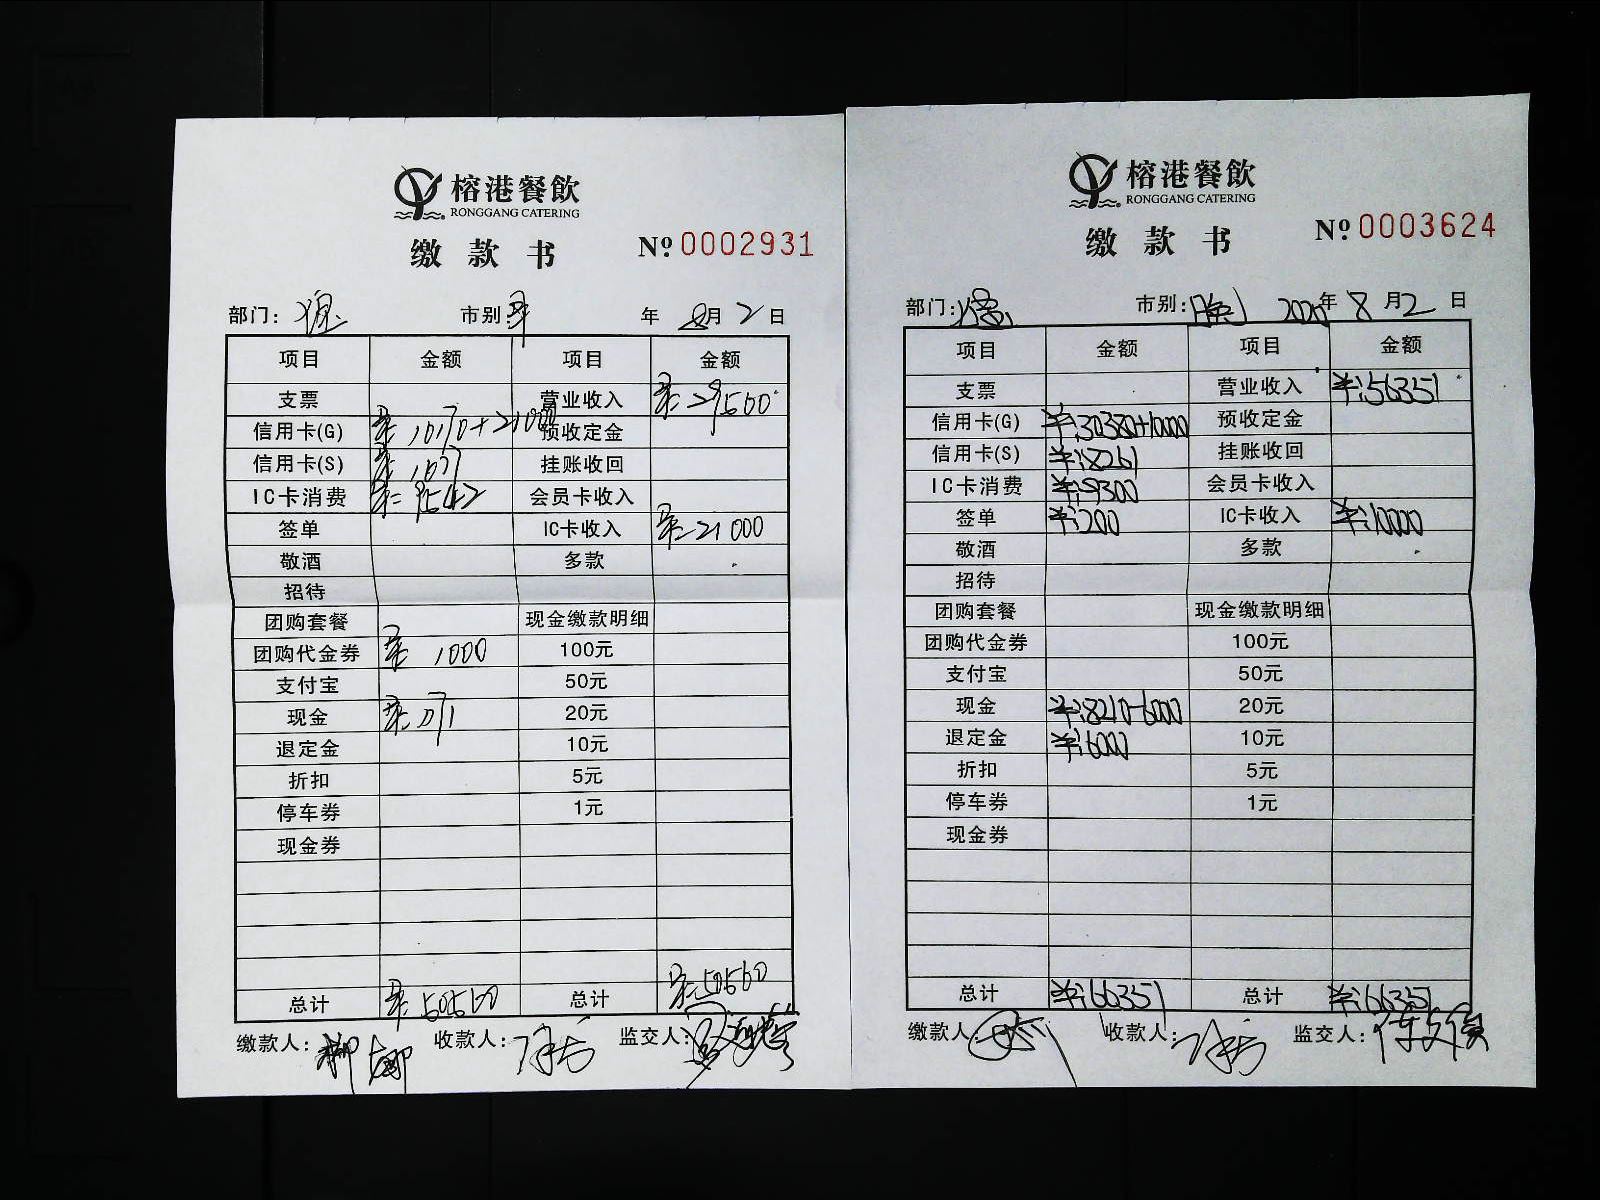 榕港餐飲
RONGGANG CATERING
缴款书 № 0002931
部门: 市别: 年 8月2日
项目 金额 项目 金额
支票 营业收入
信用卡(G) 预收定金
信用卡(S) 挂账收回
IC卡消费 会员卡收入
签单 IC卡收入 21000
敬酒 多款
招待
团购套餐 现金缴款明细
团购代金券 1000 100元
支付宝 50元
现金 20元
退定金 10元
折扣 5元
停车券 1元
现金券
总计 总计
缴款人: 收款人: 监交人:
榕港餐飲
RONGGANG CATERING
缴款书 № 0003624
部门: 市别: 晚 2020年8月2日
项目 金额 项目 金额
支票 营业收入 ¥:56351
信用卡(G) ¥:30380+10000 预收定金
信用卡(S) ¥:8261 挂账收回
IC卡消费 ¥:9300 会员卡收入
签单 ¥:200 IC卡收入 ¥:10000
敬酒 多款
招待
团购套餐 现金缴款明细
团购代金券 100元
支付宝 50元
现金 ¥:8210-6000 20元
退定金 ¥:6000 10元
折扣 5元
停车券 1元
现金券
总计 ¥:66351 总计 ¥:66351
缴款人: 收款人: 监交人: